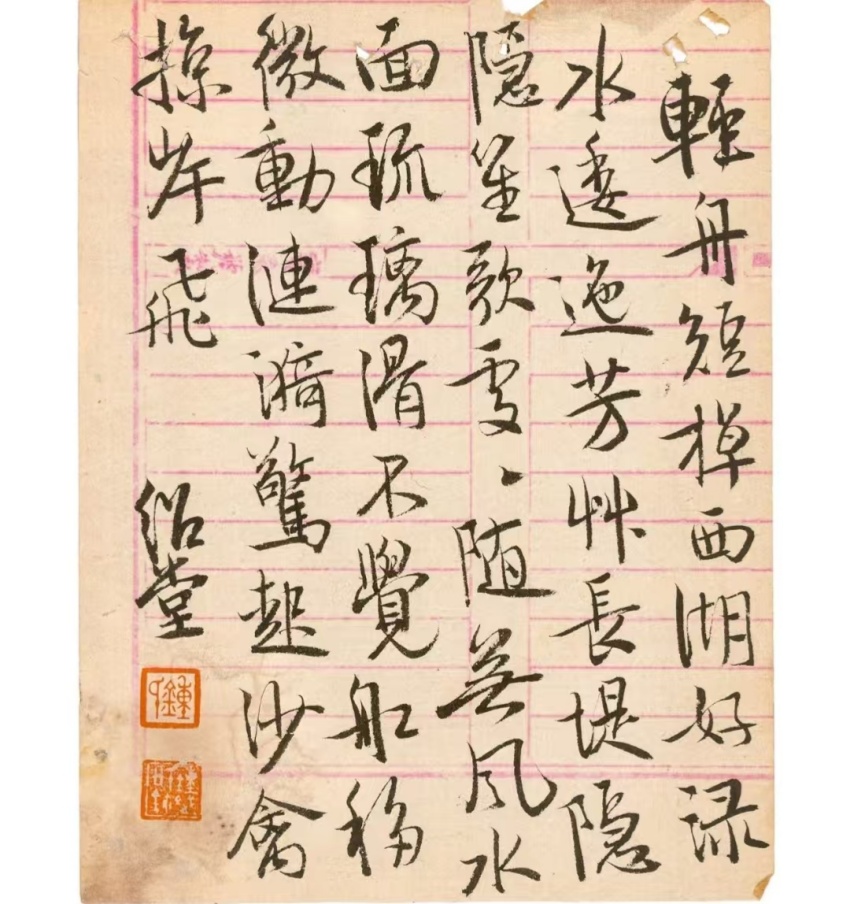 輕舟短棹西湖好渌
水逶迤芳艸長堤隱
隱笙歌處〻随無風水
面琉璃滑不覺船移
微動漣漪驚起沙禽
掠岸飛
紹堂